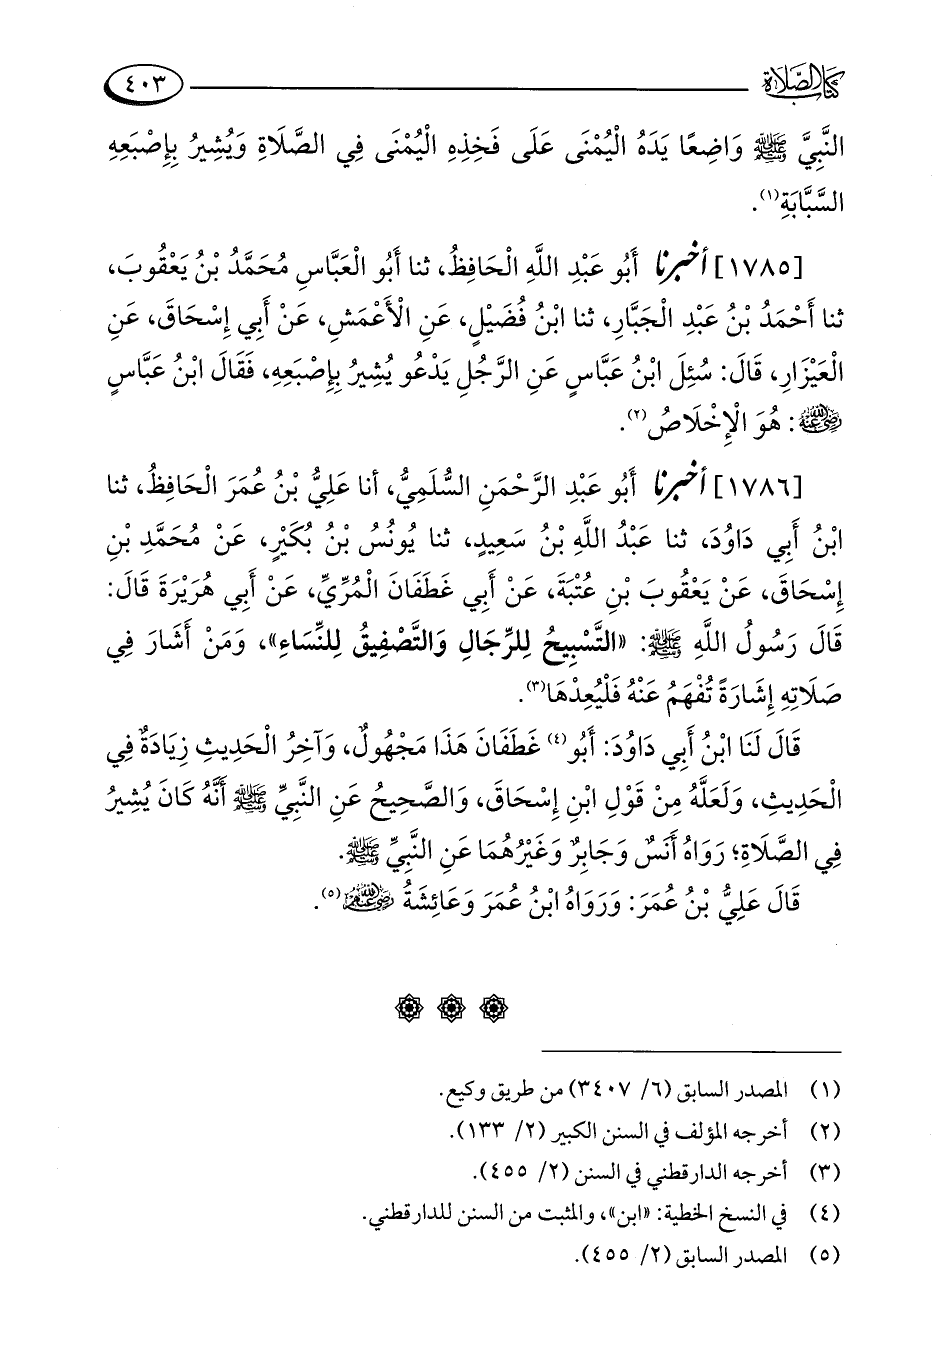 كتاب الصلاة
٤٠٣
النَّبِيَّ ﷺ وَاضِعًا يَدَهُ الْيُمْنَى عَلَى فَخِذِهِ الْيُمْنَى فِي الصَّلَاةِ وَيُشِيرُ بِإِصْبَعِهِ
السَّبَّابَةِ(١).
[١٧٨٥] أخبرنا أَبُو عَبْدِ اللَّهِ الْحَافِظُ، ثنا أَبُو الْعَبَّاسِ مُحَمَّدُ بْنُ يَعْقُوبَ،
ثنا أَحْمَدُ بْنُ عَبْدِ الْجَبَّارِ، ثنا ابْنُ فُضَيْلٍ، عَنِ الْأَعْمَشِ، عَنْ أَبِي إِسْحَاقَ، عَنِ
الْعَيْزَارِ، قَالَ: سُئِلَ ابْنُ عَبَّاسٍ عَنِ الرَّجُلِ يَدْعُو يُشِيرُ بِإِصْبَعِهِ، فَقَالَ ابْنُ عَبَّاسٍ
رضي الله عنه: هُوَ الْإِخْلَاصُ(٢).
[١٧٨٦] أخبرنا أَبُو عَبْدِ الرَّحْمَنِ السُّلَمِيُّ، أنا عَلِيُّ بْنُ عُمَرَ الْحَافِظُ، ثنا
ابْنُ أَبِي دَاوُدَ، ثنا عَبْدُ اللَّهِ بْنُ سَعِيدٍ، ثنا يُونُسُ بْنُ بُكَيْرٍ، عَنْ مُحَمَّدِ بْنِ
إِسْحَاقَ، عَنْ يَعْقُوبَ بْنِ عُتْبَةَ، عَنْ أَبِي غَطَفَانَ الْمُرِّيِّ، عَنْ أَبِي هُرَيْرَةَ قَالَ:
قَالَ رَسُولُ اللَّهِ ﷺ: «التَّسْبِيحُ لِلرِّجَالِ وَالتَّصْفِيقُ لِلنِّسَاءِ»، وَمَنْ أَشَارَ فِي
صَلَاتِهِ إِشَارَةً تُفْهَمُ عَنْهُ فَلْيُعِدْهَا(٣).
قَالَ لَنَا ابْنُ أَبِي دَاوُدَ: أَبُو(٤) غَطَفَانَ هَذَا مَجْهُولٌ، وَآخِرُ الْحَدِيثِ زِيَادَةٌ فِي
الْحَدِيثِ، وَلَعَلَّهُ مِنْ قَوْلِ ابْنِ إِسْحَاقَ، وَالصَّحِيحُ عَنِ النَّبِيِّ ﷺ أَنَّهُ كَانَ يُشِيرُ
فِي الصَّلَاةِ؛ رَوَاهُ أَنَسٌ وَجَابِرٌ وَغَيْرُهُمَا عَنِ النَّبِيِّ ﷺ.
قَالَ عَلِيُّ بْنُ عُمَرَ: وَرَوَاهُ ابْنُ عُمَرَ وَعَائِشَةُ رضي الله عنهم(٥).
(١) المصدر السابق (٦/ ٣٤٠٧) من طريق وكيع.
(٢) أخرجه المؤلف في السنن الكبير (٢/ ١٣٣).
(٣) أخرجه الدارقطني في السنن (٢/ ٤٥٥).
(٤) في النسخ الخطية: «ابن»، والمثبت من السنن للدارقطني.
(٥) المصدر السابق (٢/ ٤٥٥).